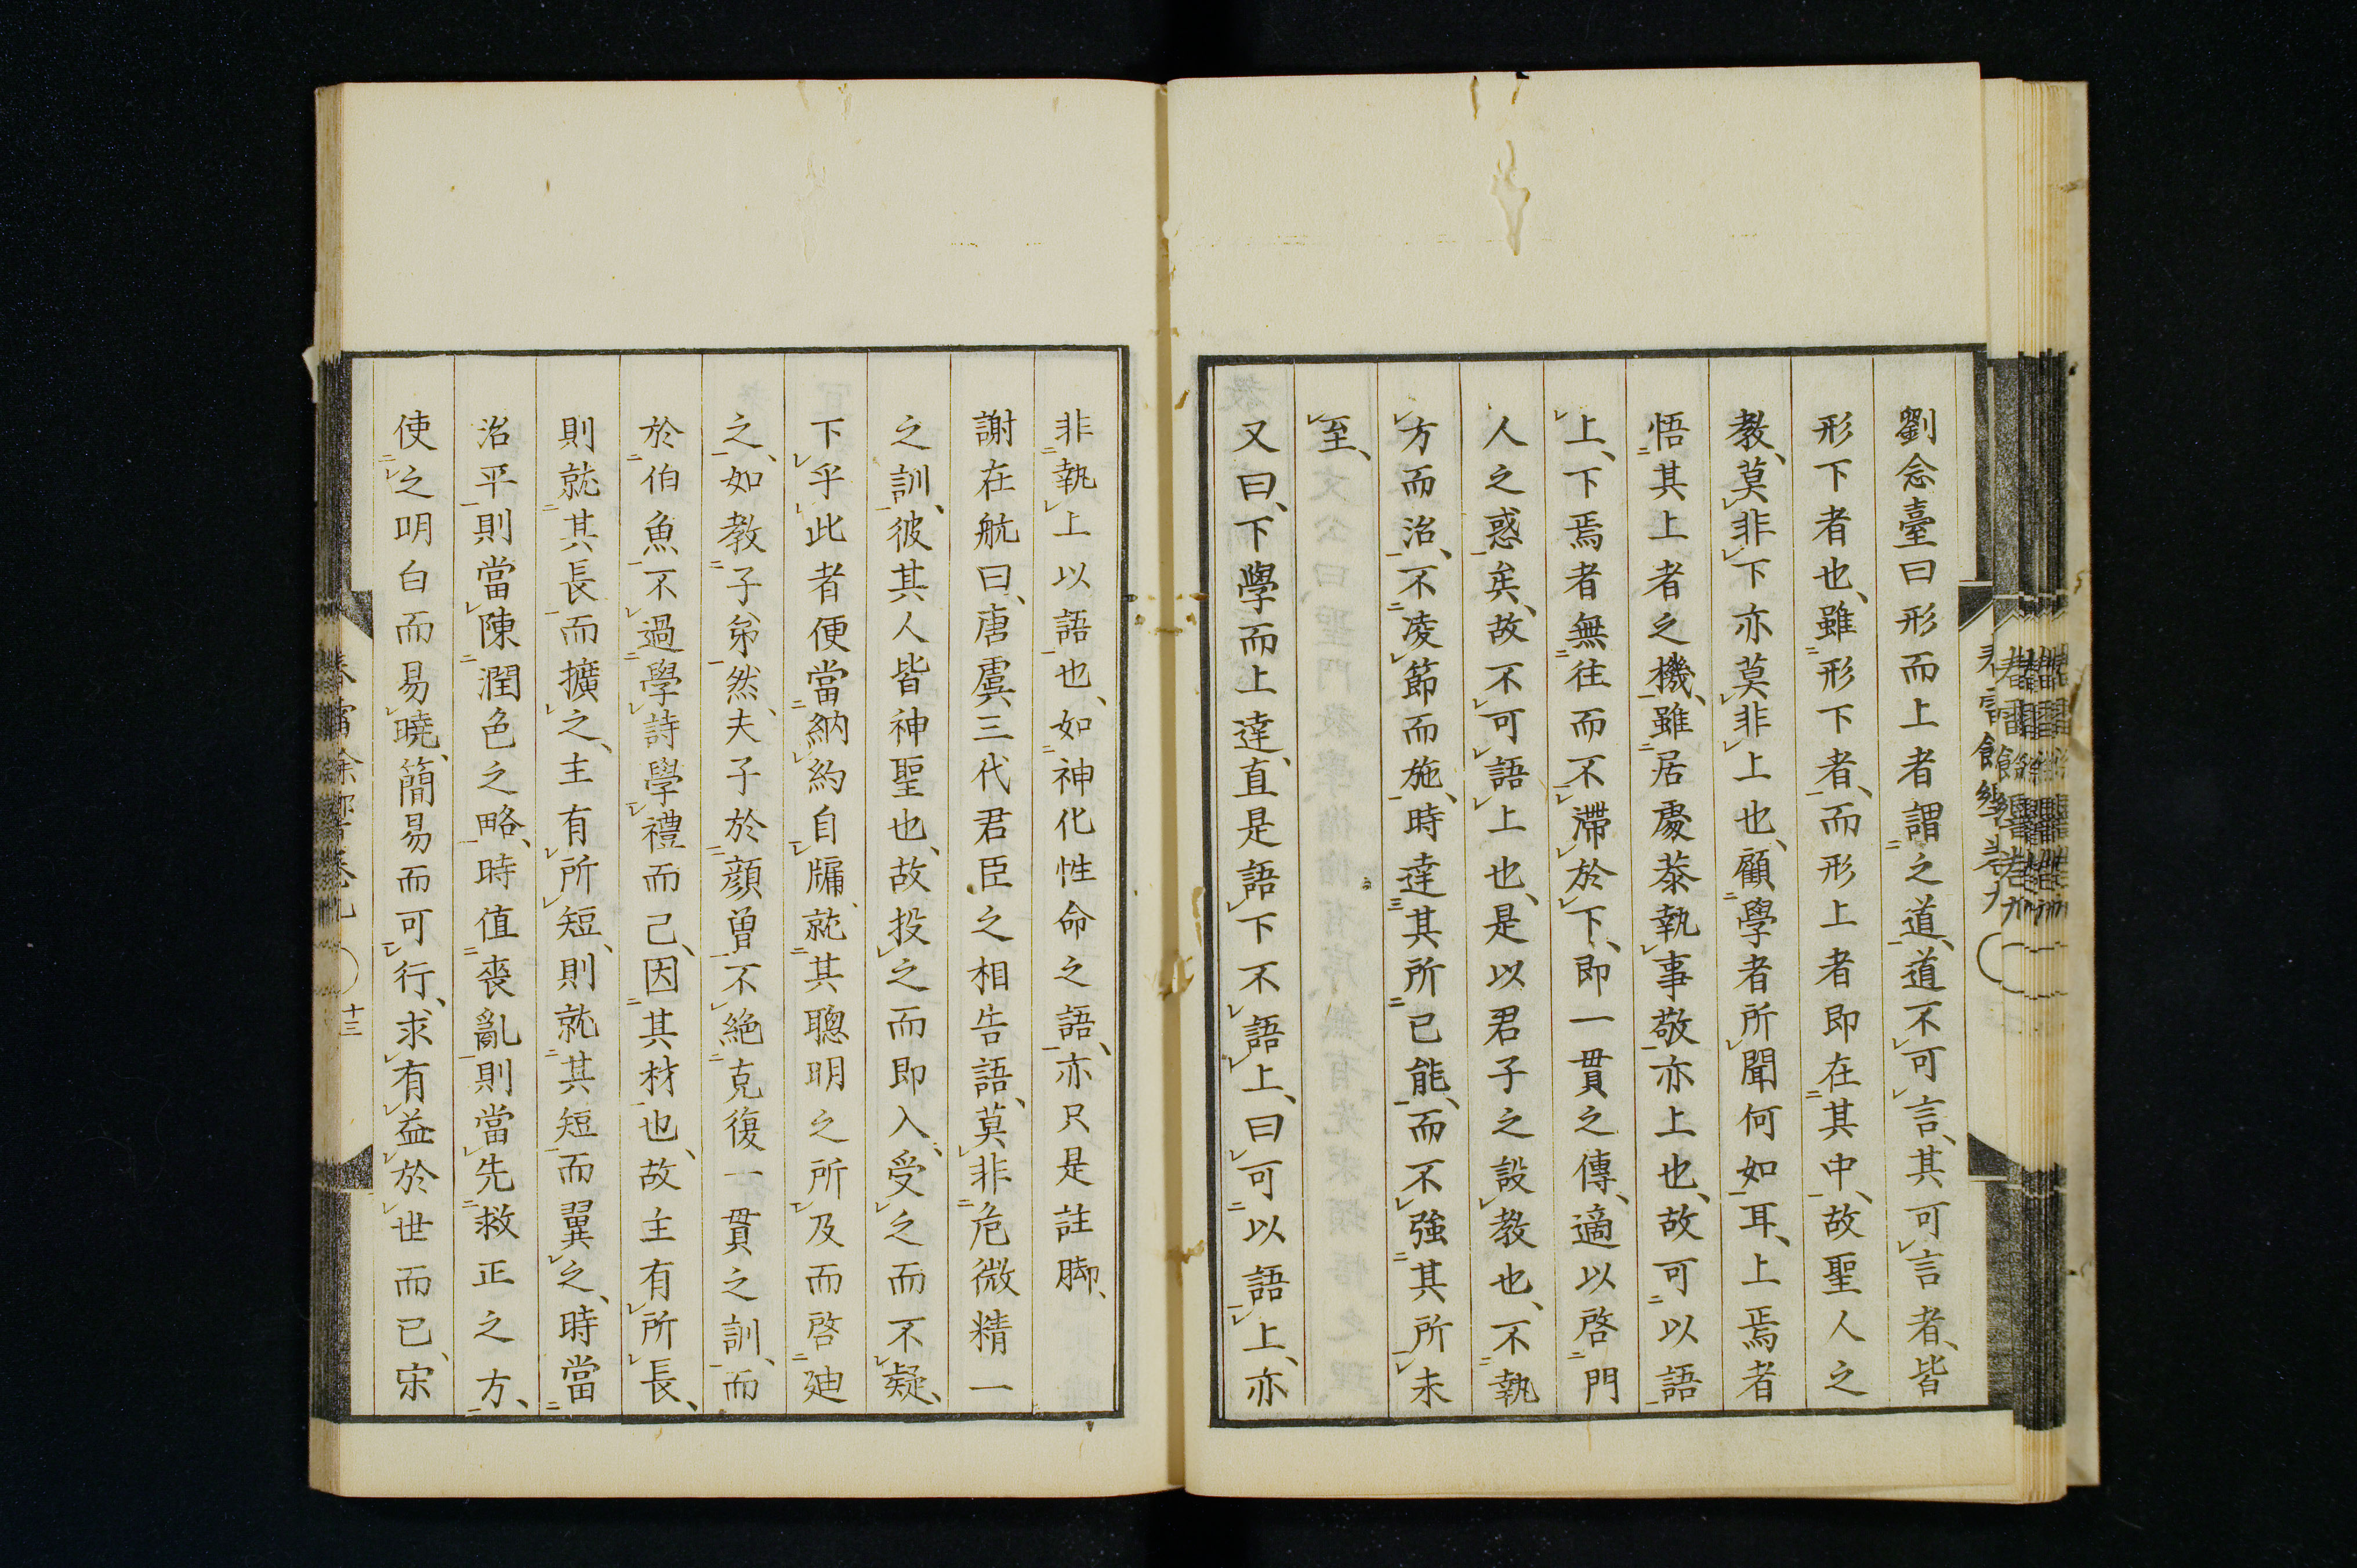 劉念臺曰形而上者謂之道、道不可言、其可言者、皆
形下者也、雖形下者、而形上者即在其中、故聖人之
教、莫非下亦莫非上也、顧學者所聞何如耳、上焉者
悟其上者之機、雖居處恭執事敬亦上也、故可以語
上、下焉者無往而不滯於下、即一貫之傳、適以啓門
人之惑矣、故不可語上也、是以君子之設教也、不執
方而治、不凌節而施、時達其所已能、而不強其所未
至、
又曰、下學而上達、直是語下不語上、曰可以語上、亦
非執上以語也、如神化性命之語、亦只是註脚、
謝在杭曰、唐虞三代君臣之相告語、莫非危微精一
之訓、彼其人皆神聖也、故投之而即入、受之而不疑、
下乎此者便當納約自牖、就其聰明之所及而啓廸
之、如教子弟然、夫子於顏曾不絶克復一貫之訓、而
於伯魚不過學詩學禮而已、因其材也、故主有所長、
則就其長而擴之、主有所短、則就其短而翼之、時當
治平則當陳潤色之略、時値喪亂則當先救正之方、
使之明白而易曉、簡易而可行、求有益於世而已、宋
十三